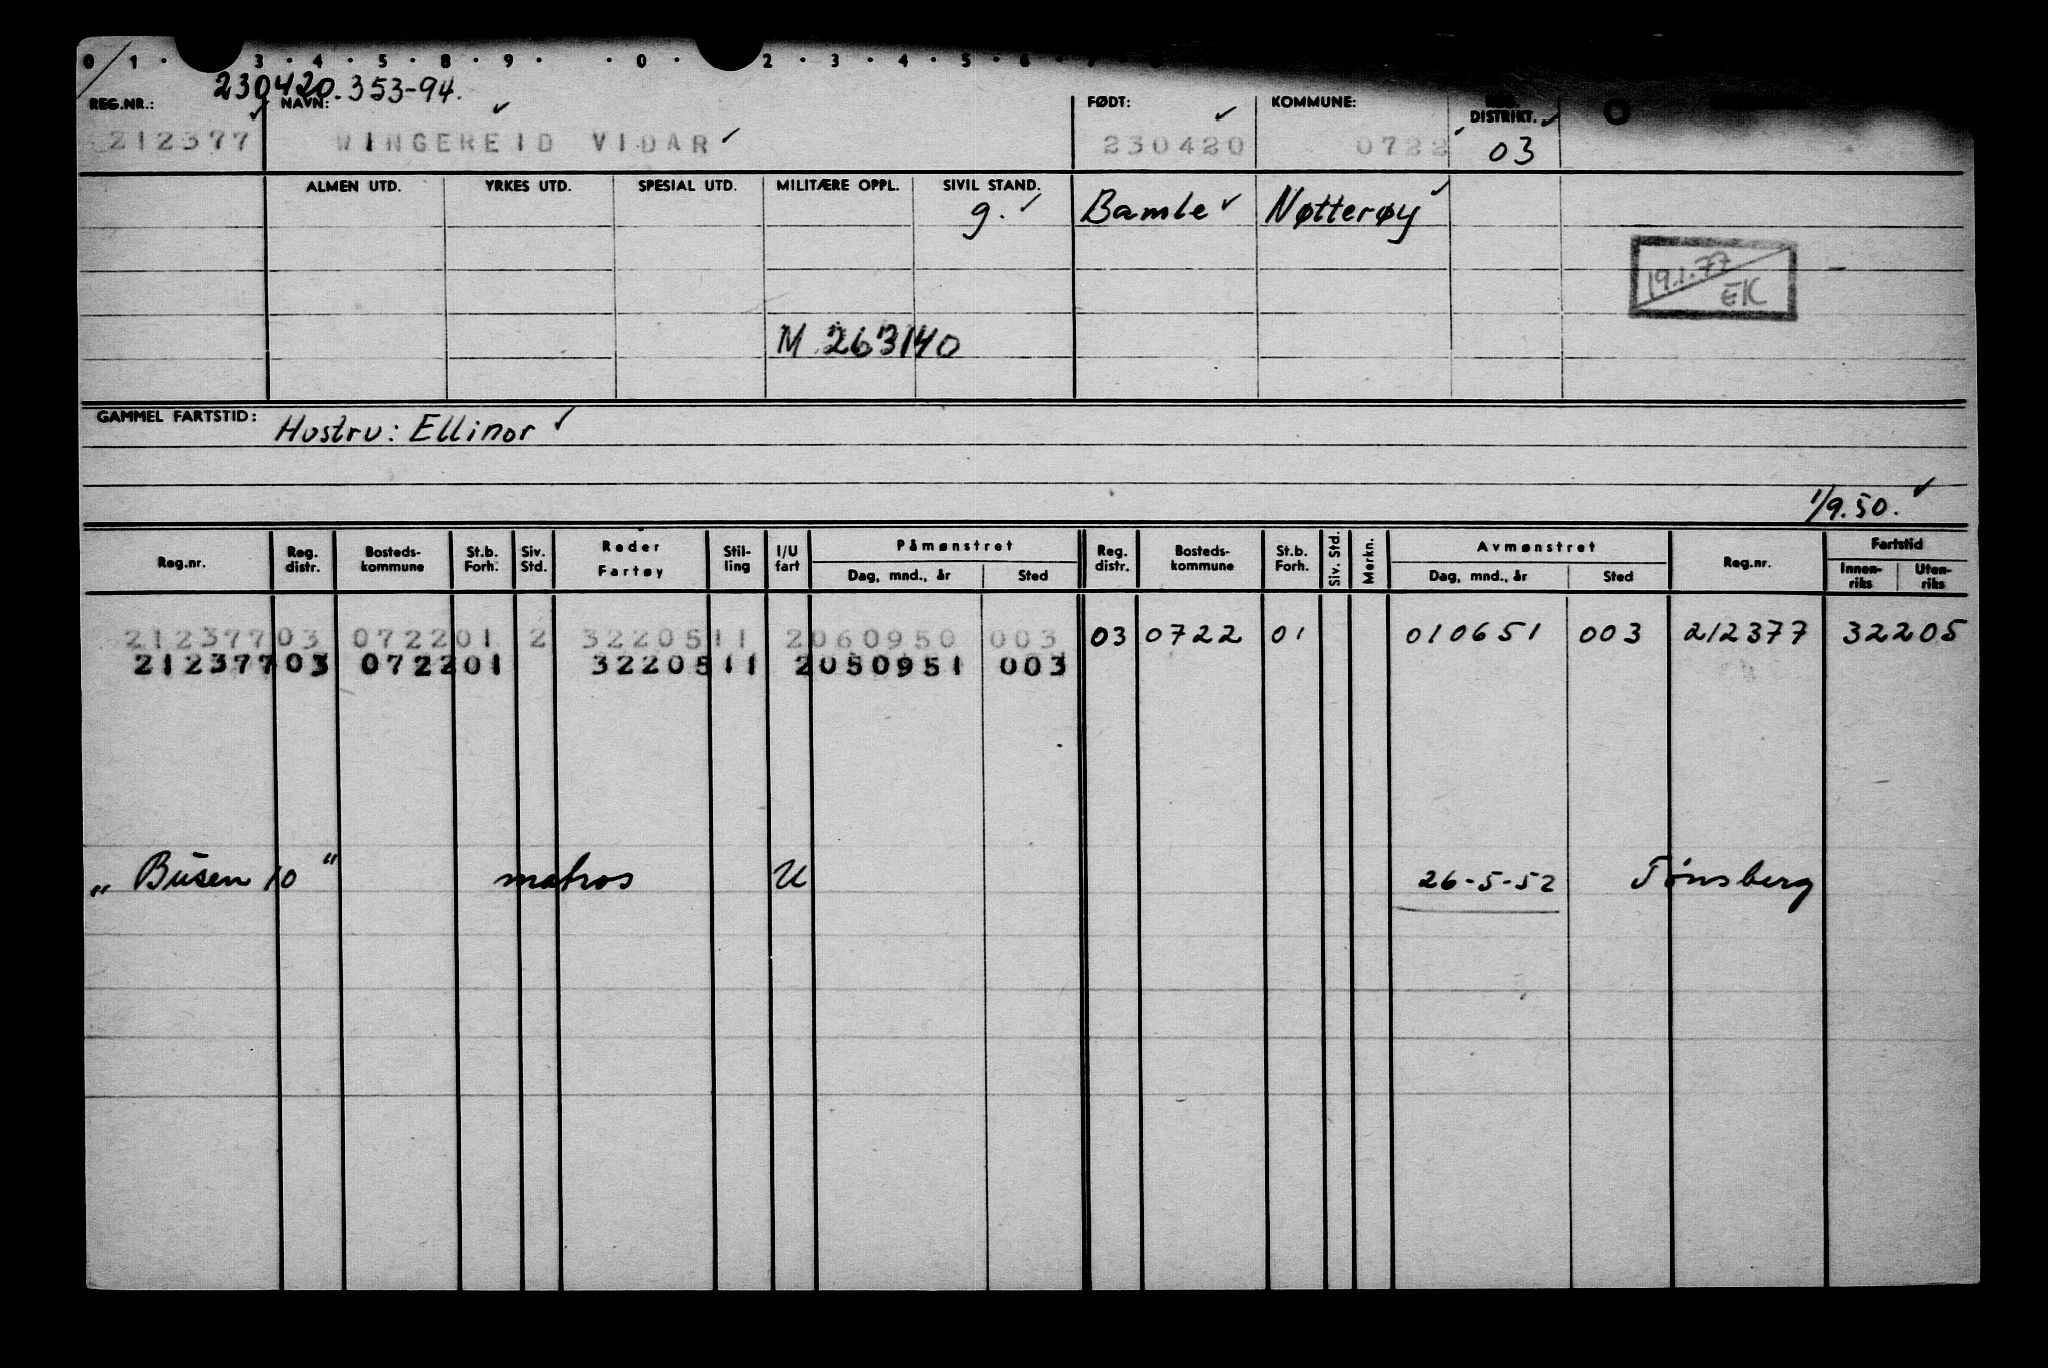 0 1 · 3 · 4 · 5 · 8 · 9 · · 0 · 2 · 3 · 4 · 5 · 6 · 7 · 8
230420.353-94.
REG.NR.: NAVN: FØDT: KOMMUNE: DISTRIKT.
212377 WINGEREID VIDAR 230420 0722 03
ALMEN UTD. YRKES UTD. SPESIAL UTD. MILITÆRE OPPL. SIVIL STAND.
g. Bamle Nøtterøy
19.1.77
EK
M 263140
GAMMEL FARTSTID: Hustru: Ellinor
1/9.50.
Reg.nr. Reg. distr. Bosteds-kommune St.b. Forh. Siv. Std. Reder Fartøy Stil-ling I/U fart Påmønstret Dag, mnd., år Sted Reg. distr. Bosteds-kommune St.b. Forh. Siv. Std. Merkn. Avmønstret Dag, mnd., år Sted Reg.nr. Fartstid Innen-riks Uten-riks
212377 03 0722 01 2 32205 11 2 060950 003 03 0722 01 010651 003 212377 32205
212377 03 0722 01 32205 11 2 050951 003
„ Busen 10 " matros U 26-5-52 Tønsberg